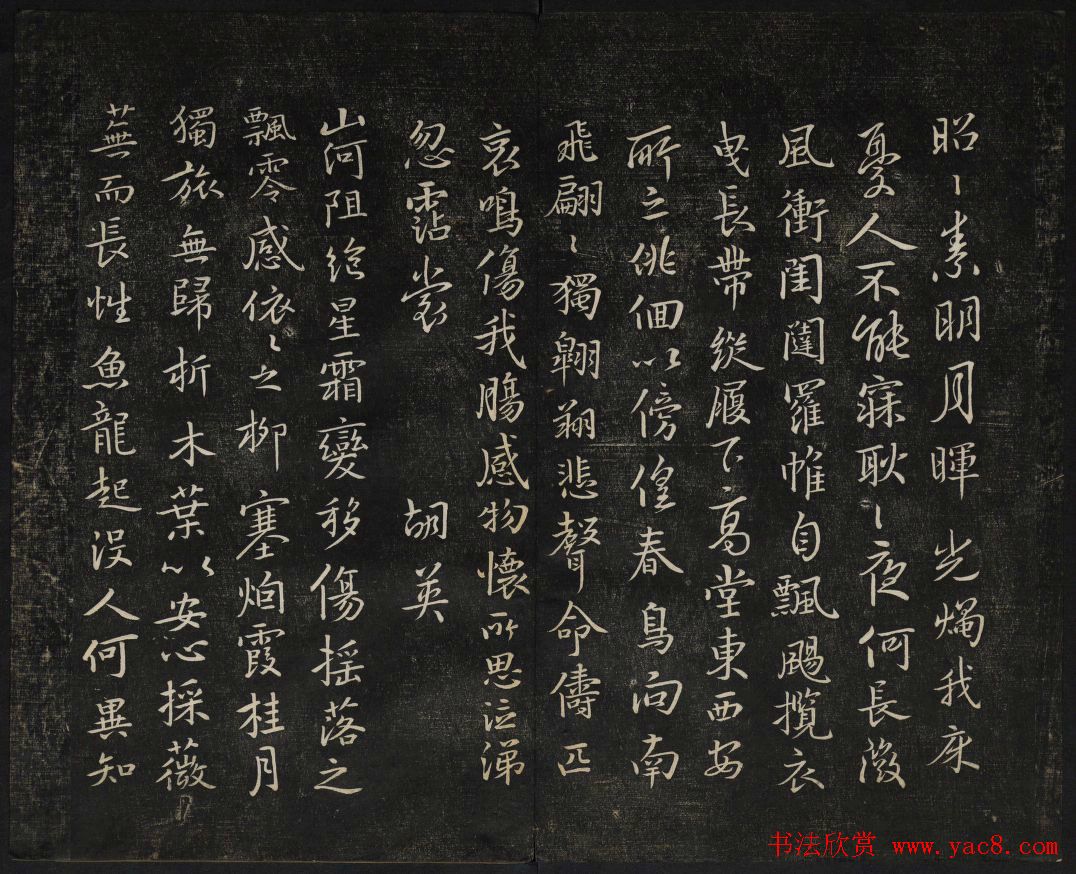 昭〻素明月暉光燭我床
憂人不能寐耿〻夜何長微
風衝閨闥羅帷自飄颺攬衣
曳長帶縱履下高堂東西安
所之徘徊以傍偟春鳥向南
飛翩〻獨翱翔悲聲命儔匹
哀鳴傷我腸感物懷所思泣涕
忽霑裳 胡英
山河阻絕星霜變移傷搖落之
飄零感依〻之柳塞烟霞桂月
獨旅無歸折木葉以安心採薇
蕪而長性魚龍起沒人何異知
书法欣赏 www.yac8.com